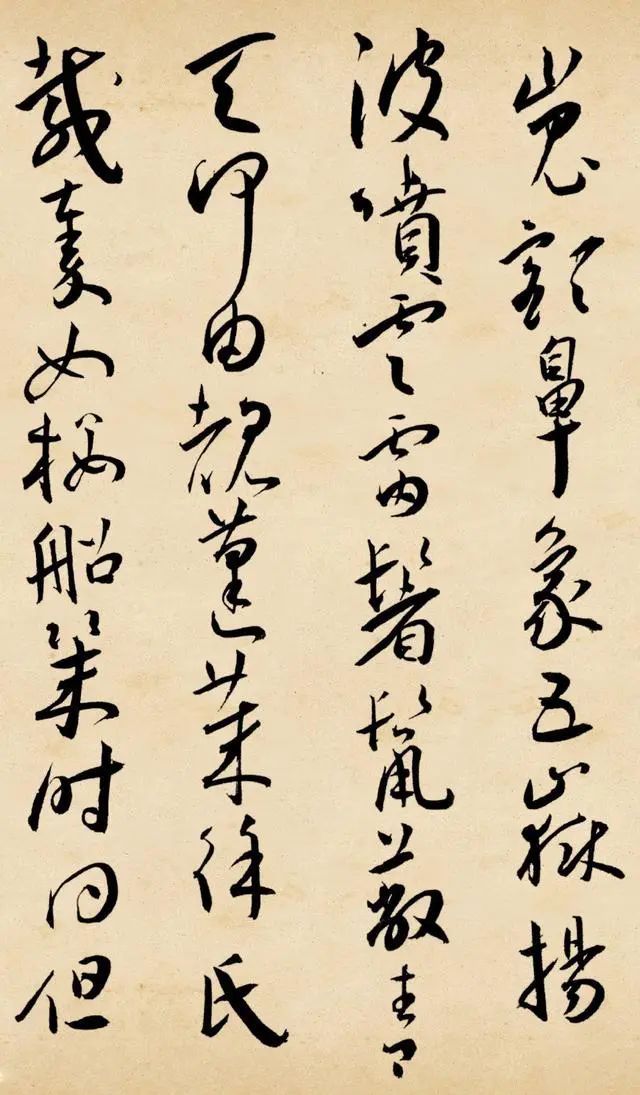 嵬額鼻象五嶽揚
波噴雲雷鬐鬣蔽青
天何由覩蓬萊徐氏
載秦女樓船幾時回但